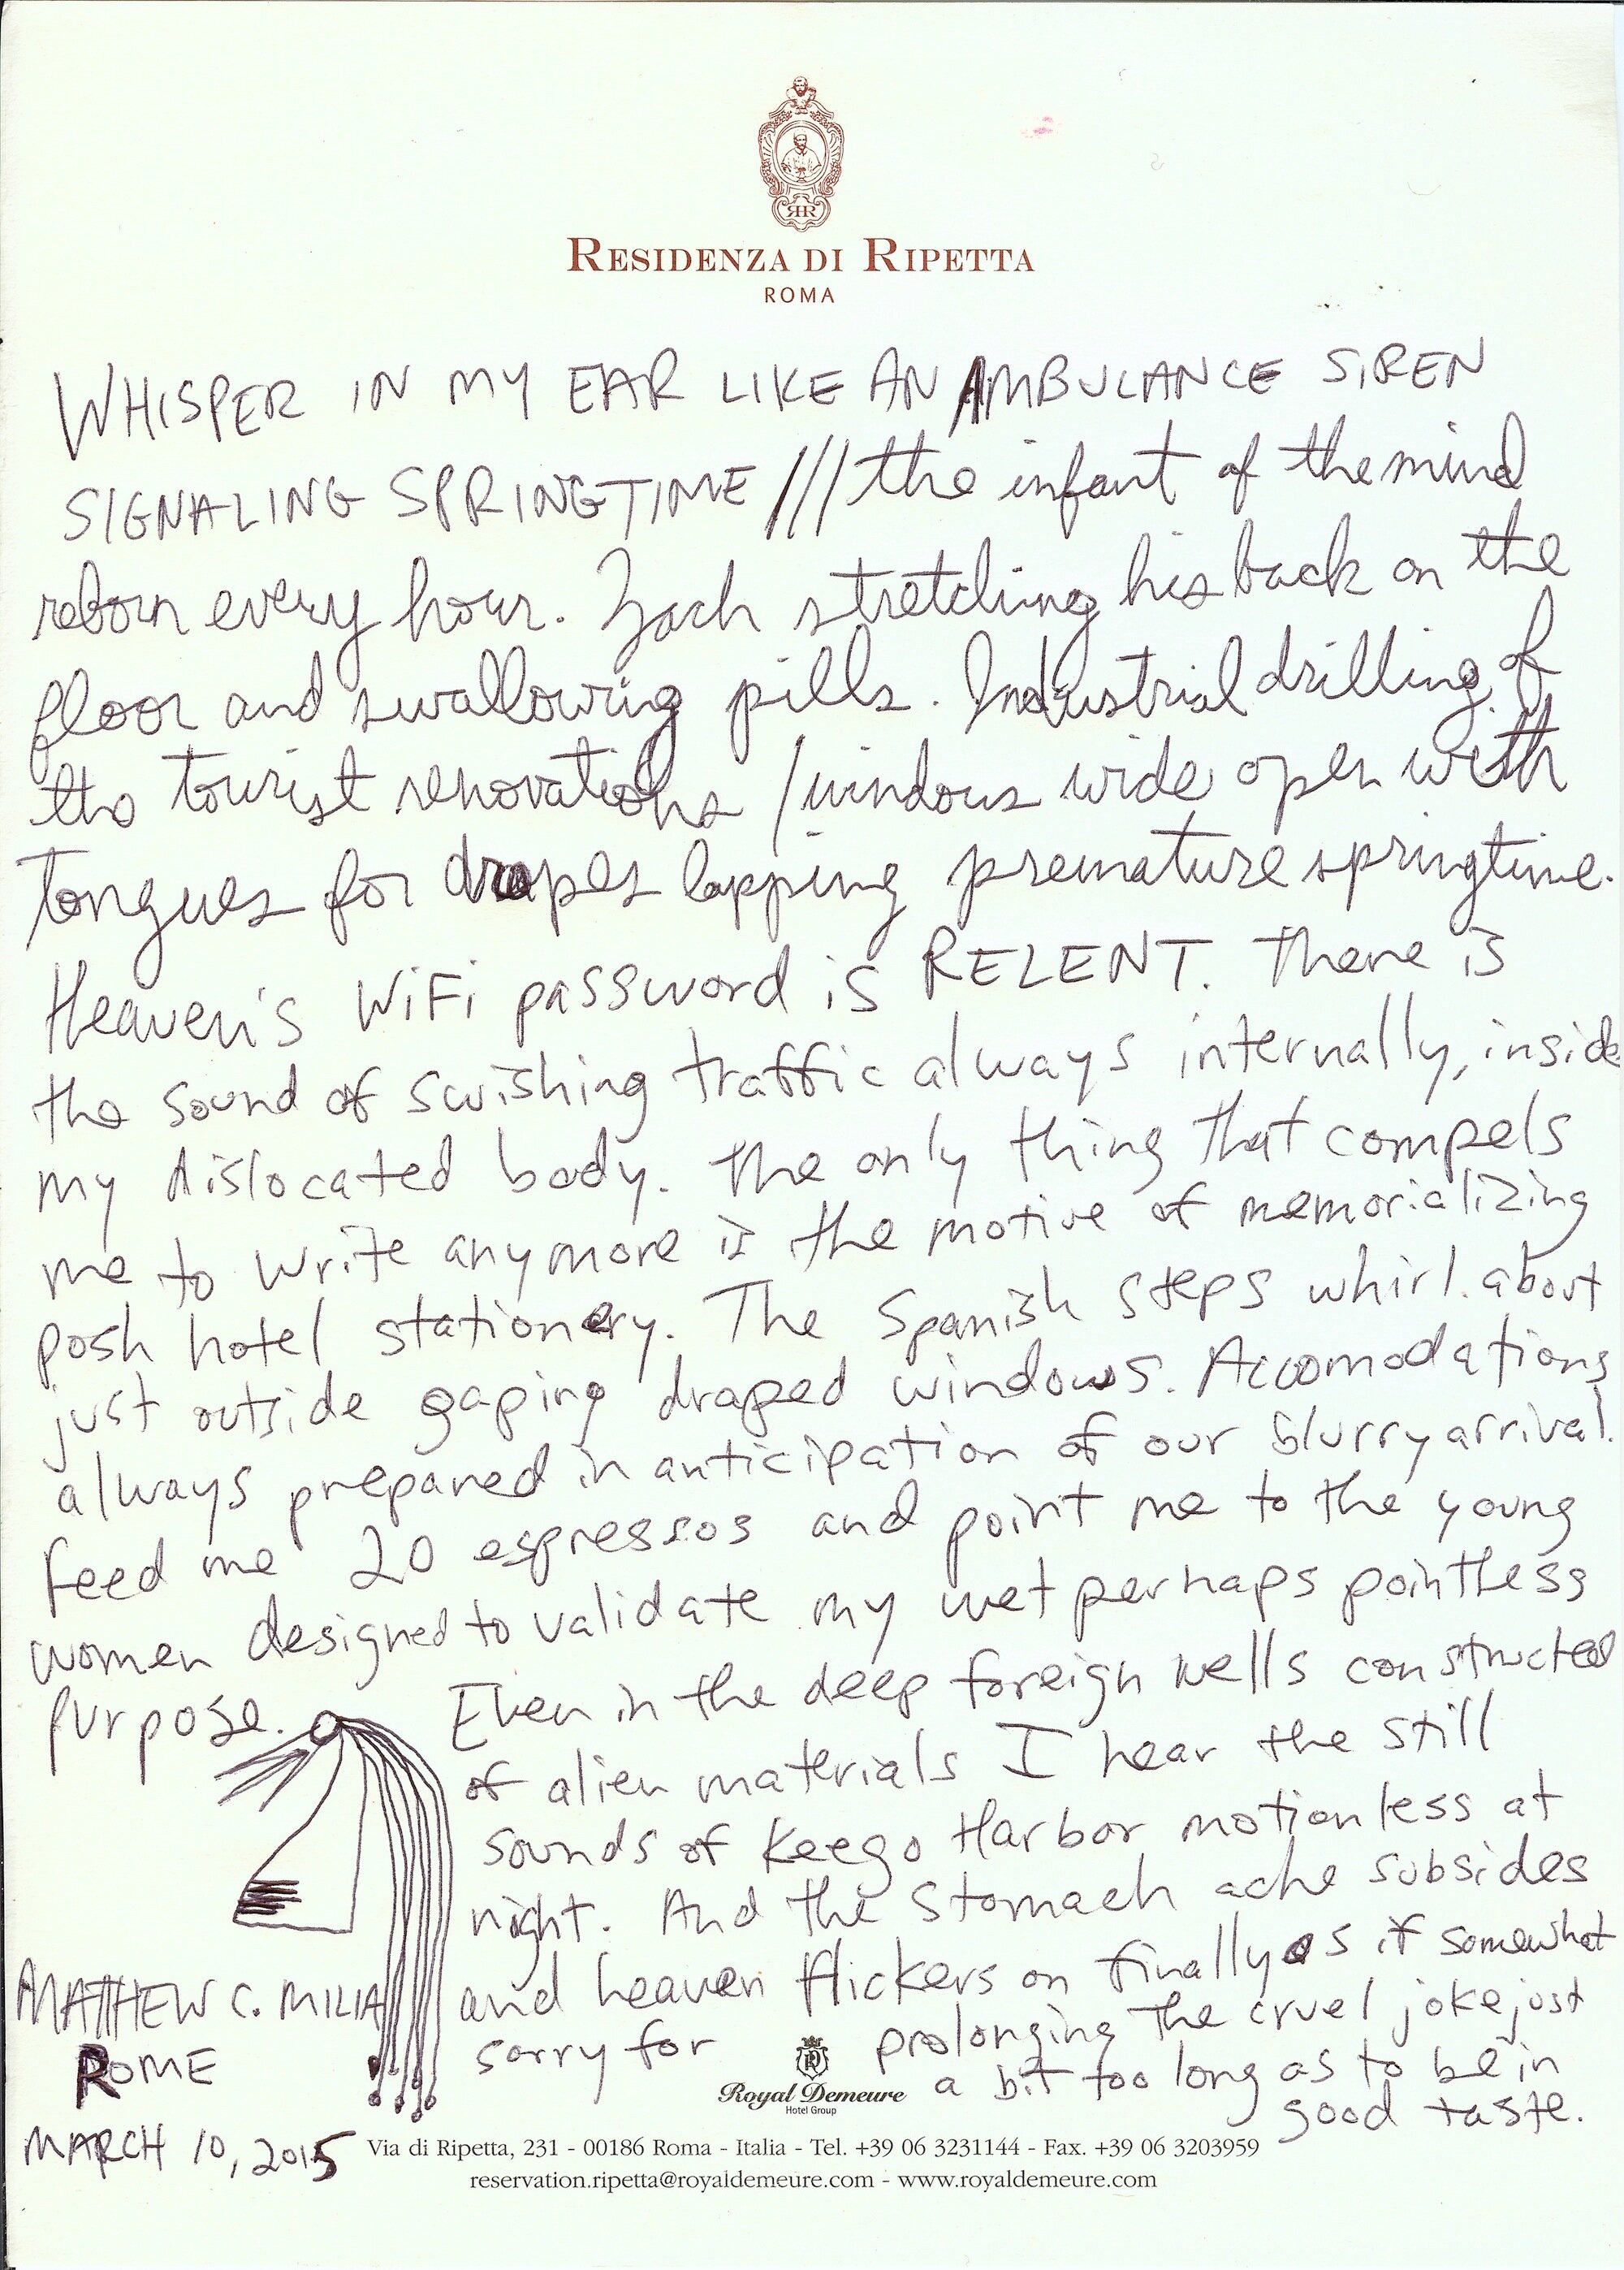 RESIDENZA DI RIPETTA
ROMA
WHISPER IN MY EAR LIKE AN AMBULANCE SIREN
SIGNALING SPRINGTIME /// the infant of the mind
reborn every hour. Zach stretching his back on the
floor and swallowing pills. Industrial drilling of
the tourist renovations / windows wide open with
tongues for drapes lapping premature springtime.
Heaven's WiFi password is RELENT. There is
the sound of swishing traffic always internally, inside
my dislocated body. The only thing that compels
me to write anymore is the motive of memorializing
posh hotel stationery. The Spanish steps whirl about
just outside gaping draped windows. Accomodations
always prepared in anticipation of our blurry arrival.
Feed me 20 espressos and point me to the young
women designed to validate my wet perhaps pointless
purpose. Even in the deep foreign wells constructed
of alien materials I hear the still
sounds of Keego Harbor motionless at
night. And the stomach ache subsides
and heaven flickers on finally as if somewhat
sorry for prolonging the cruel joke just
a bit too long as to be in
good taste.
MATTHEW C. MILIA
ROME
MARCH 10, 2015
RR
Royal Demeure
Hotel Group
Via di Ripetta, 231 - 00186 Roma - Italia - Tel. +39 06 3231144 - Fax. +39 06 3203959
reservation.ripetta@royaldemeure.com - www.royaldemeure.com